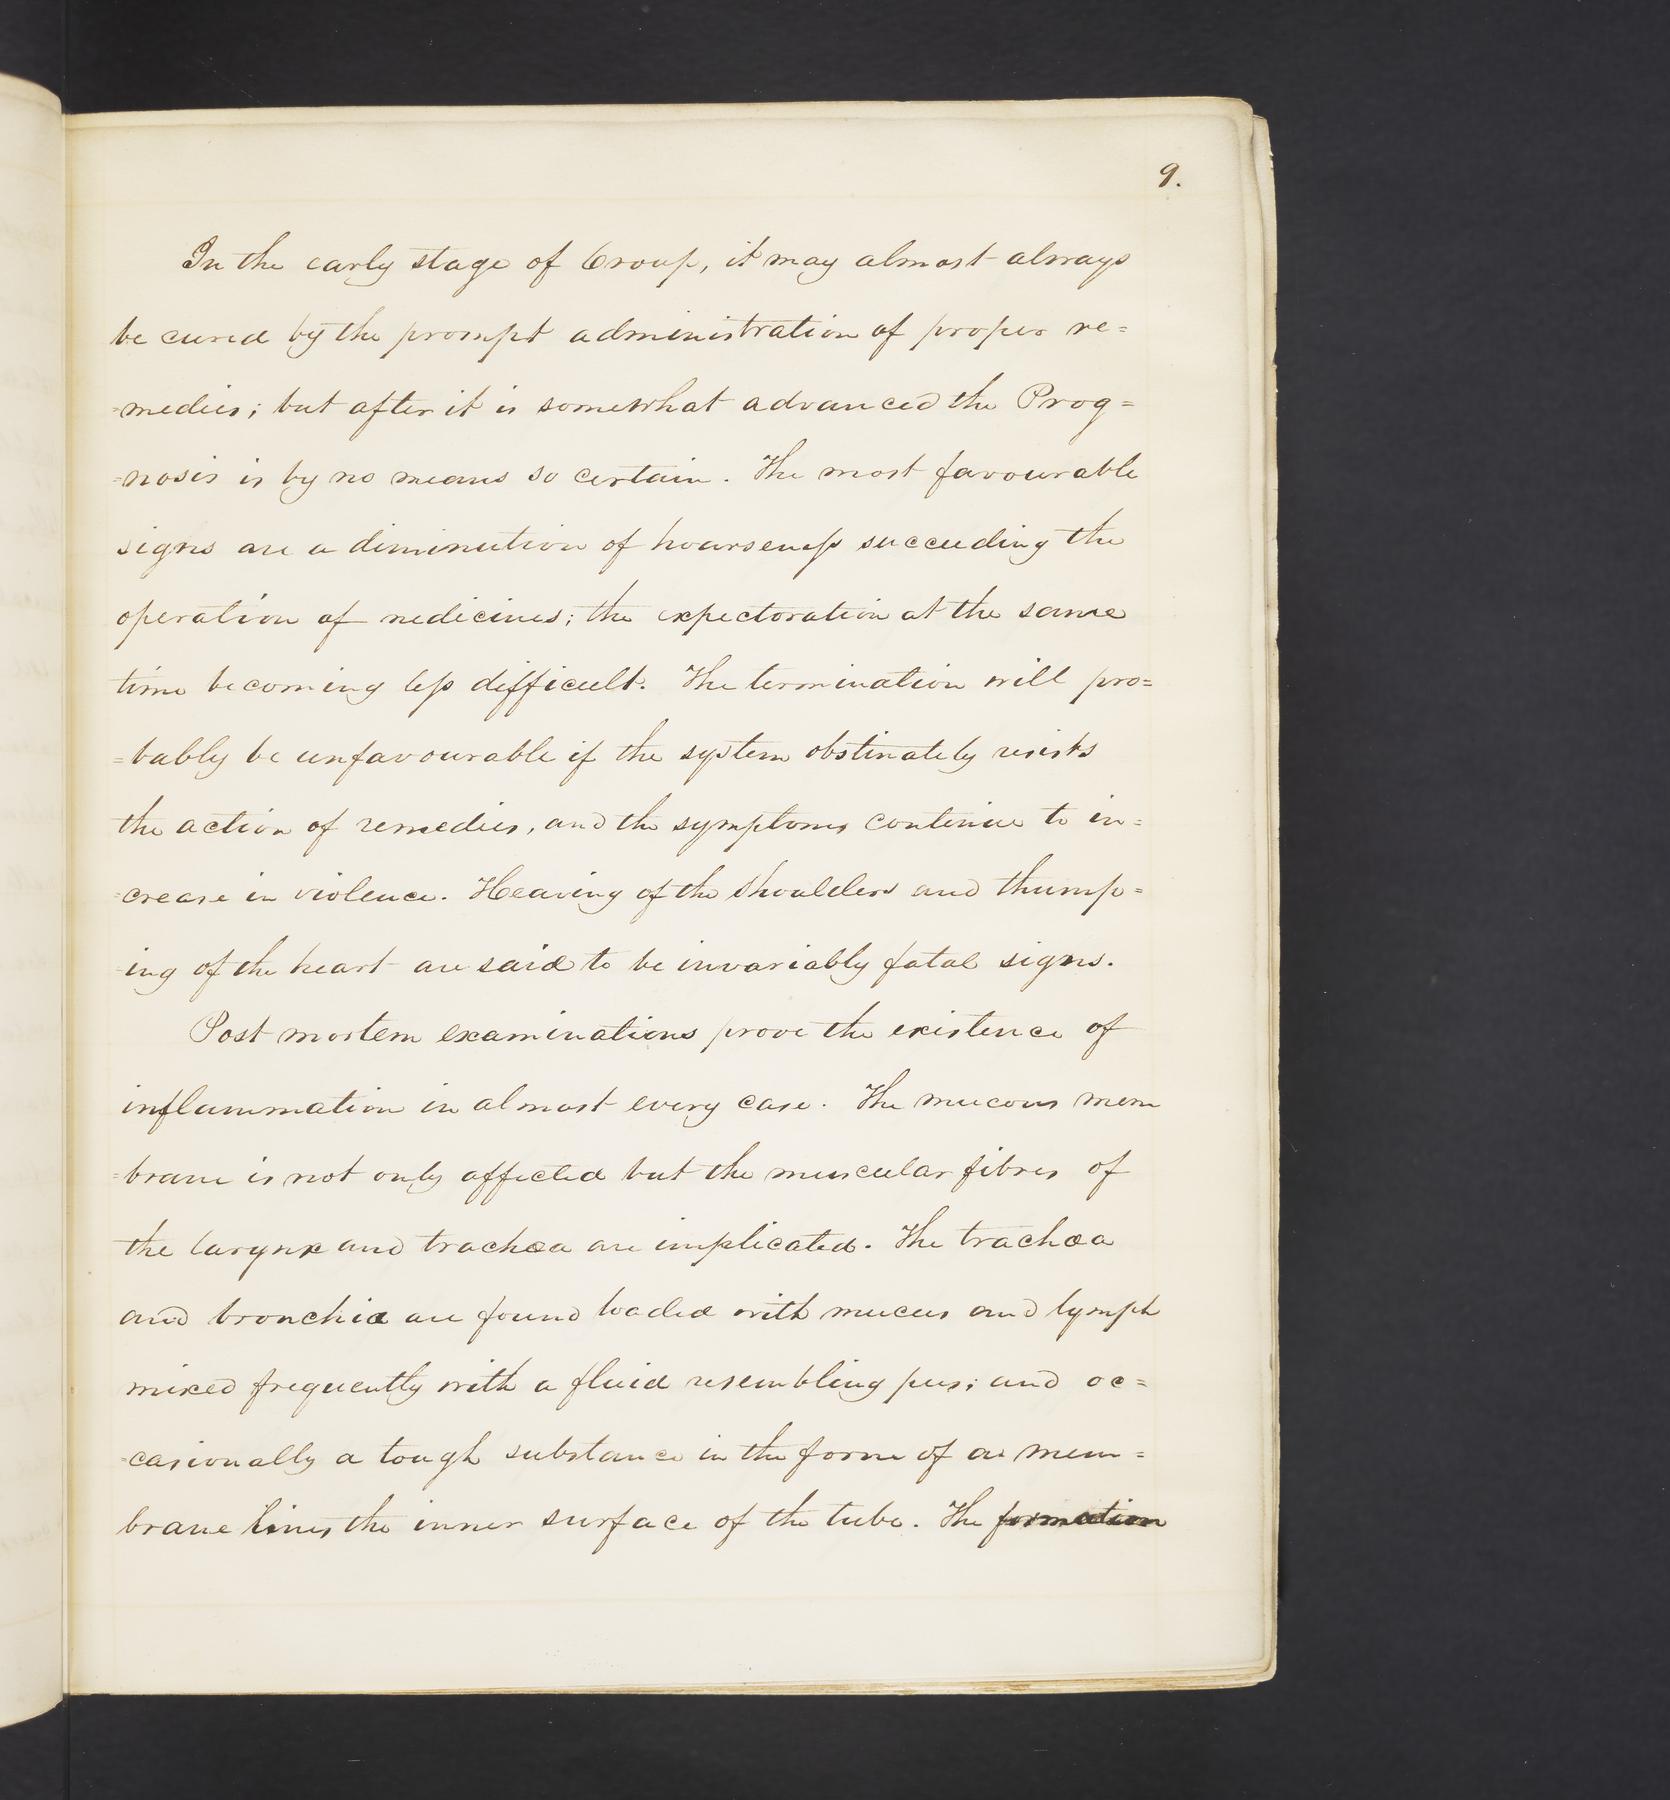 9.
In the early stage of Croup, it may almost always
be cured by the prompt administration of proper re=
=medies; but after it is somewhat advanced the Prog=
=nosis is by no means so certain. The most favourable
signs are a diminution of hoarseness succeeding the
operation of medicines; the expectoration at the same
time becoming less difficult. The termination will pro=
=bably be unfavourable if the system obstinately resists
the action of remedies, and the symptoms continue to in=
=crease in violence. Heaving of the shoulders and thump=
=ing of the heart are said to be invariably fatal signs.
Post mortem examinations prove the existence of
inflammation in almost every case. The mucous mem
=brane is not only affected but the muscular fibres of
the larynx and trachæa are implicated. The trachæa
and bronchia are found loaded with mucus and lymph
mixed frequently with a fluid resembling pus; and oc=
=casionally a tough substance in the form of a mem=
brane lines the inner surface of the tube. The formation